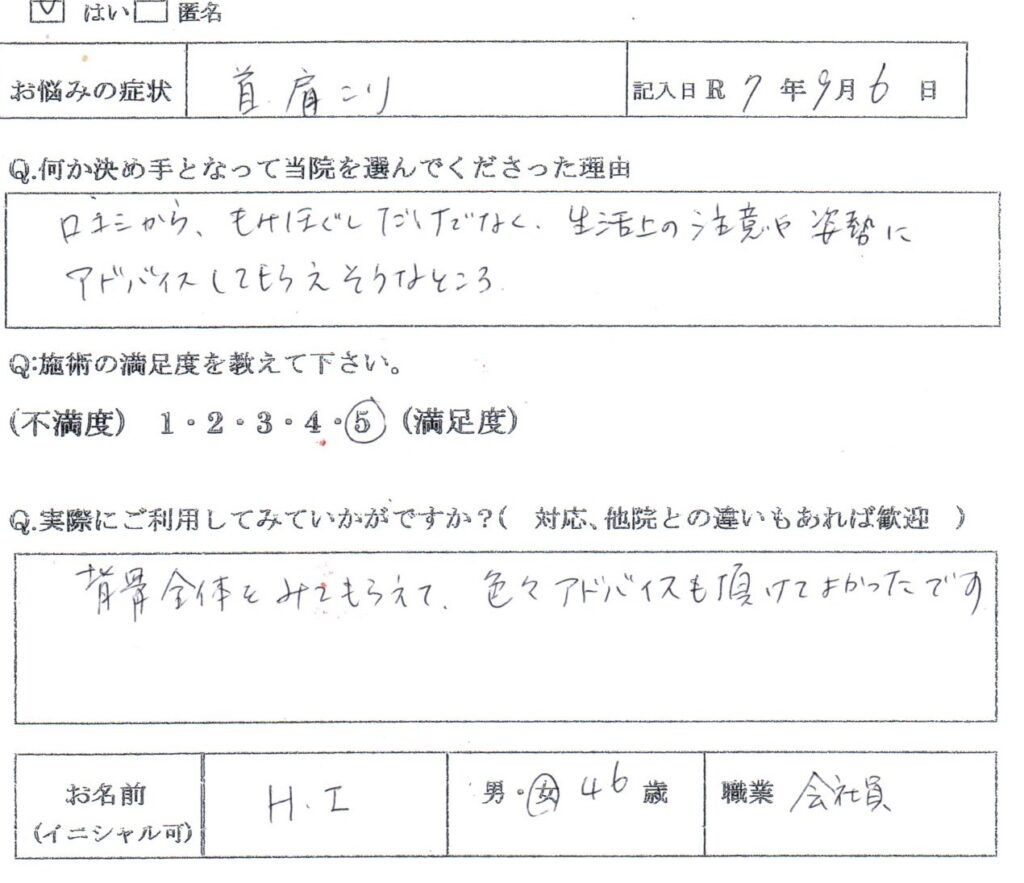 ☑ はい □ 匿名
お悩みの症状 首.肩こり 記入日 R 7 年 9月 6 日
Q.何が決め手となって当院を選んでくださった理由
口コミから、もみほぐしだけでなく、生活上の注意や姿勢に
アドバイスしてもらえそうなところ.
Q:施術の満足度を教えて下さい。
(不満度) 1・2・3・4・5 (満足度)
Q.実際にご利用してみていかがですか?( 対応、他院との違いもあれば歓迎 )
背骨全体をみてもらえて、色々アドバイスも頂けてよかったです
お名前 H.I 男・女 46 歳 職業 会社員
(イニシャル可)